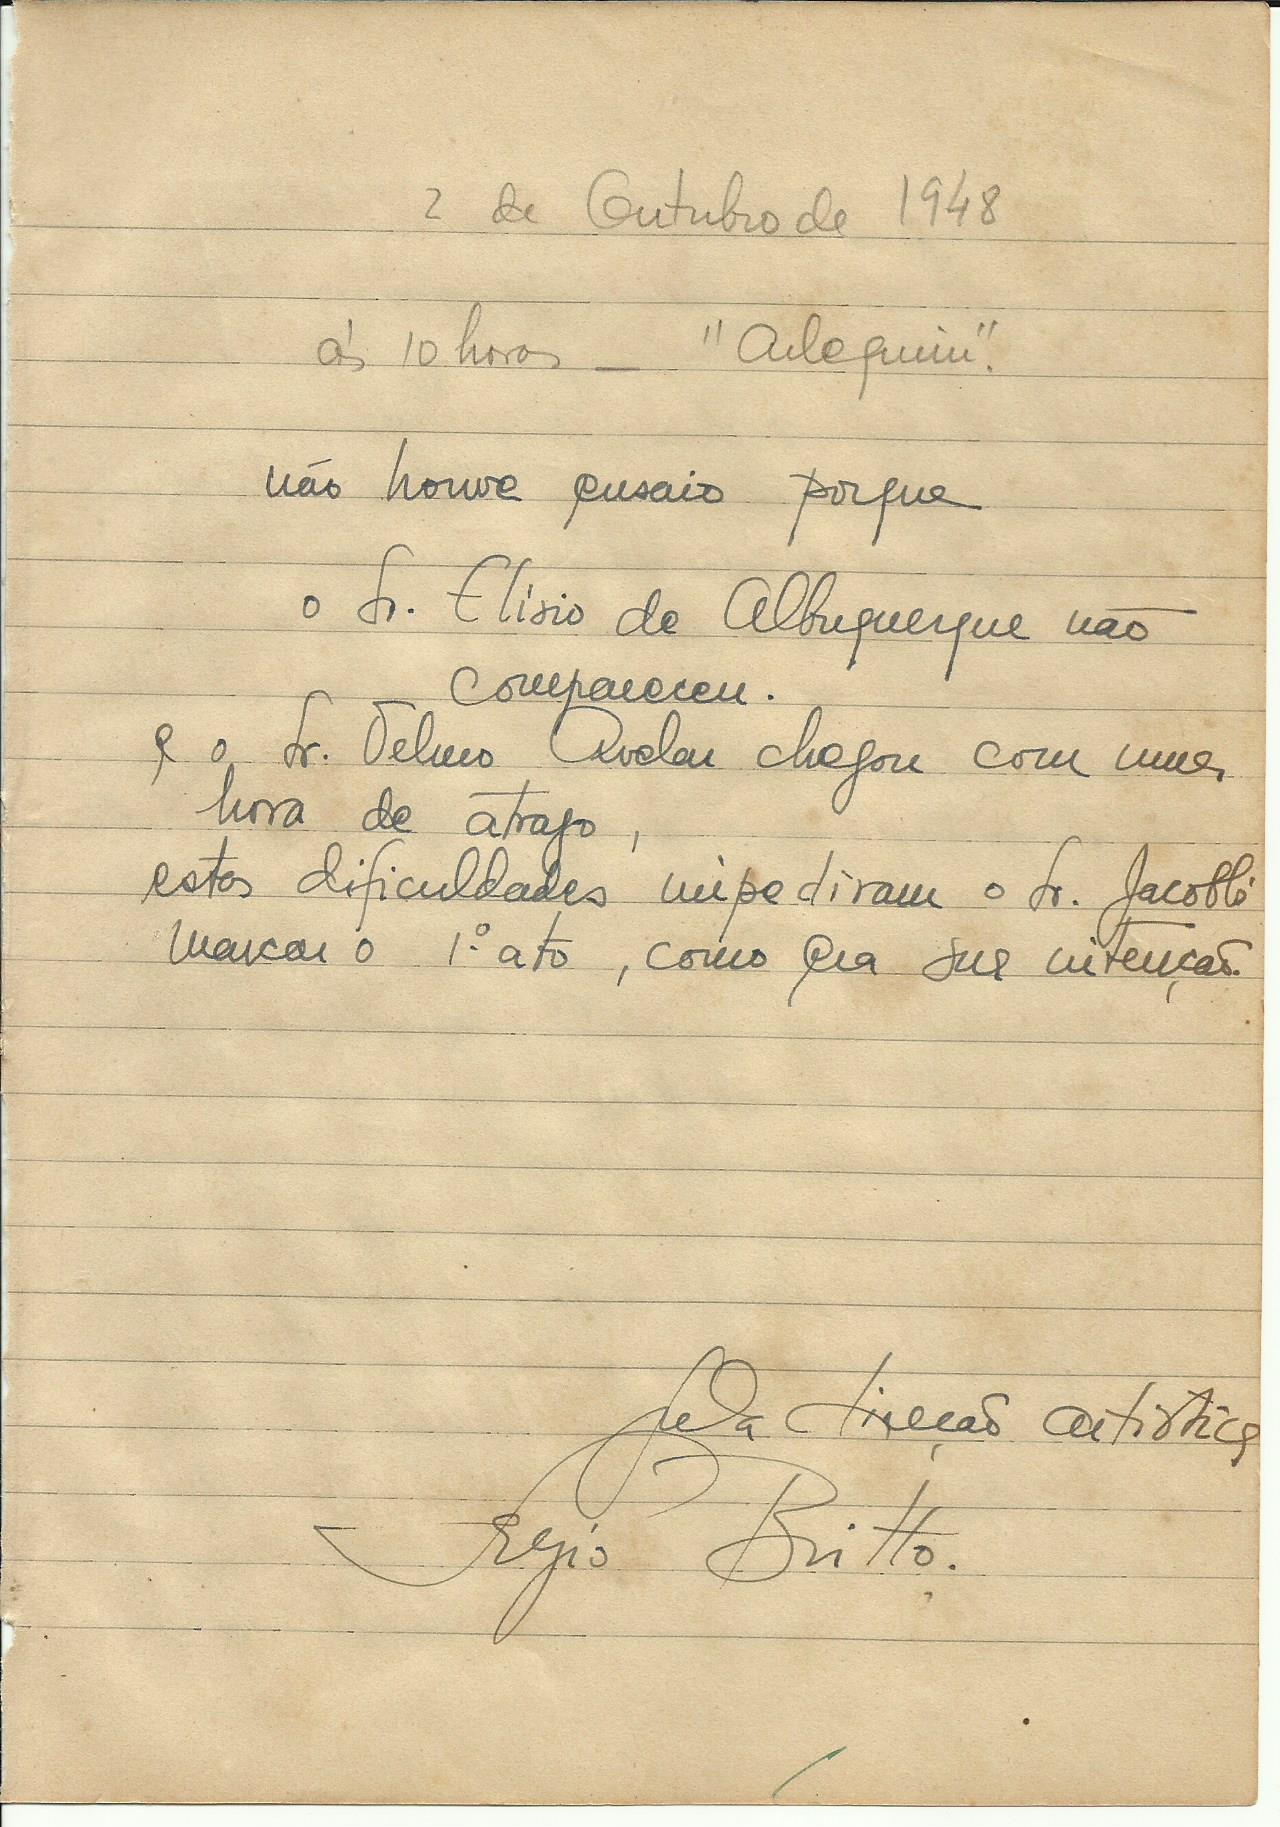 2 de Outubro de 1948
ás 10 horas — "Arlequim".
não houve ensaio porque
o Sr. Elísio de Albuquerque não
compareceu.
e o Sr. Telmo Avelar chegou com uma
hora de atrazo,
estas dificuldades impediram o Sr. Jacobbi
marcar o 1º ato, como era sua intenção.
Pela direcção artística
Sergio Britto.